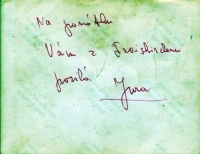 Na památku
Vám z
posílá
Jura